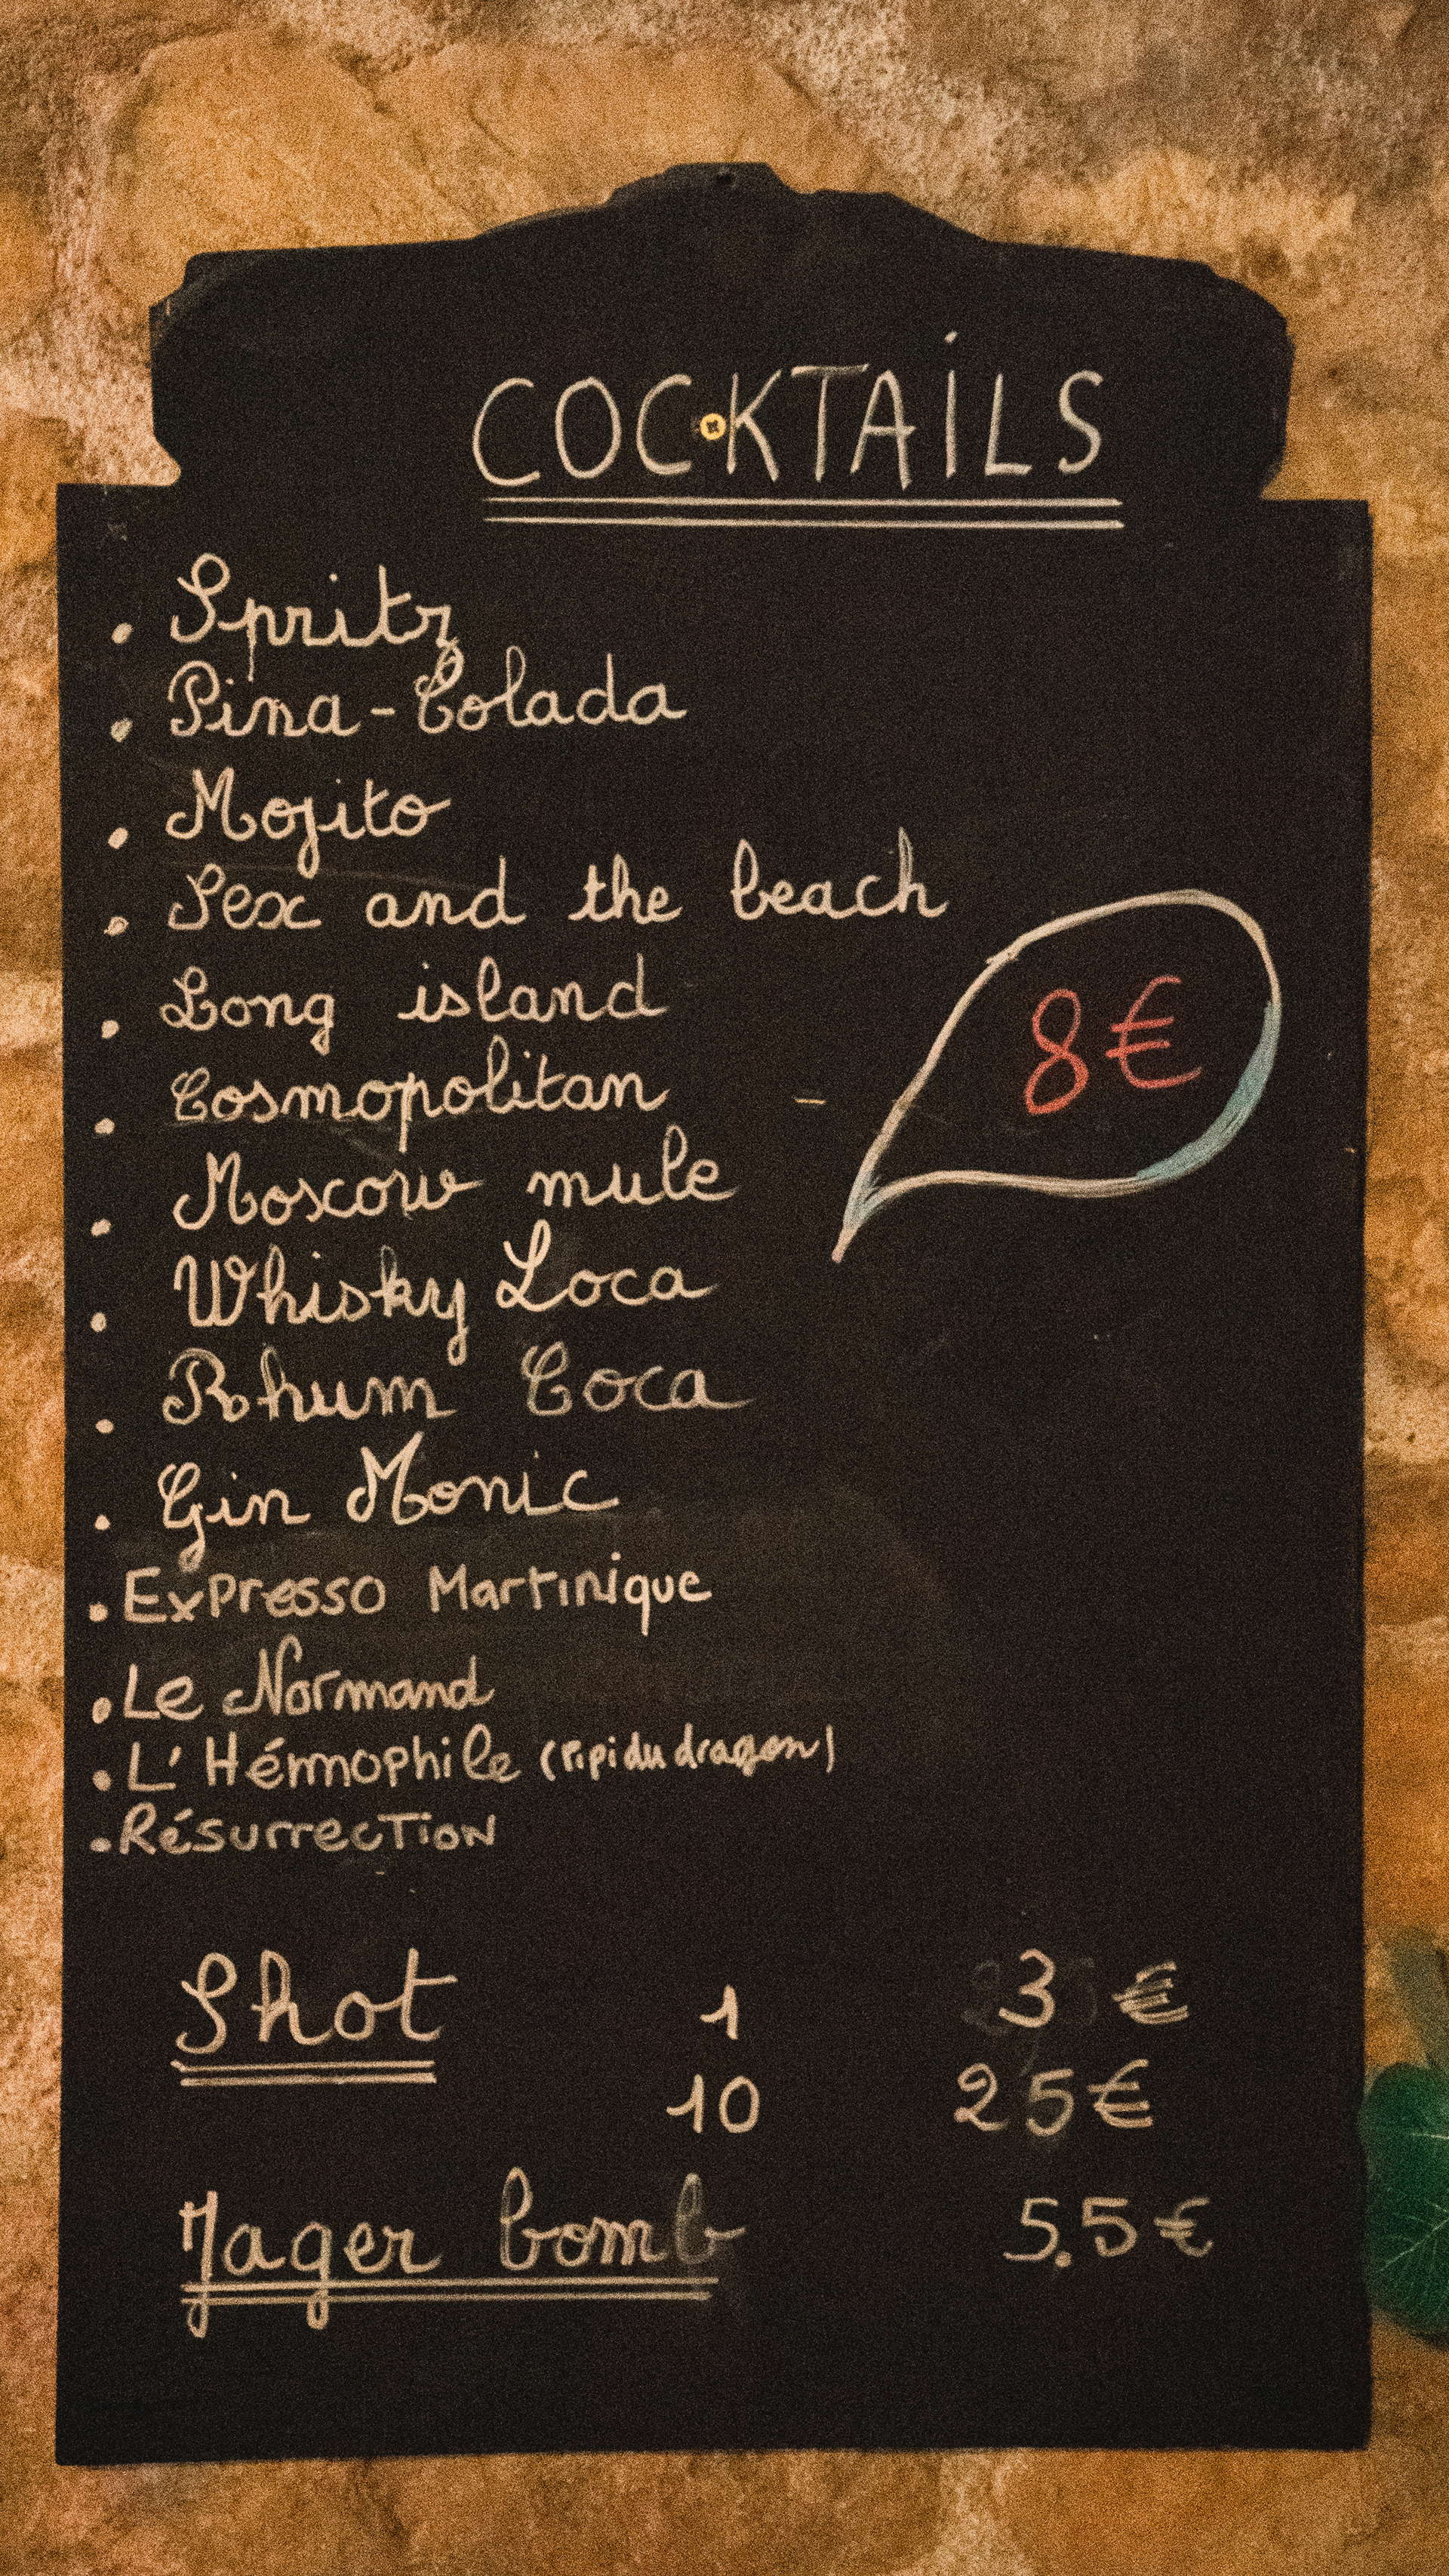 COCKTAILS
. Spritz
. Pina-Colada
. Mojito
. Sex and the beach
. Long island
8€
. Cosmopolitan
. Moscow mule
. Whisky Loca
. Rhum Coca
. Gin Monic
. Expresso Martinique
. Le Normand
. L'Hémophile (Pipi du dragon)
. Résurrection
Shot 1 3 €
10 25€
Jager bomb 5.5€